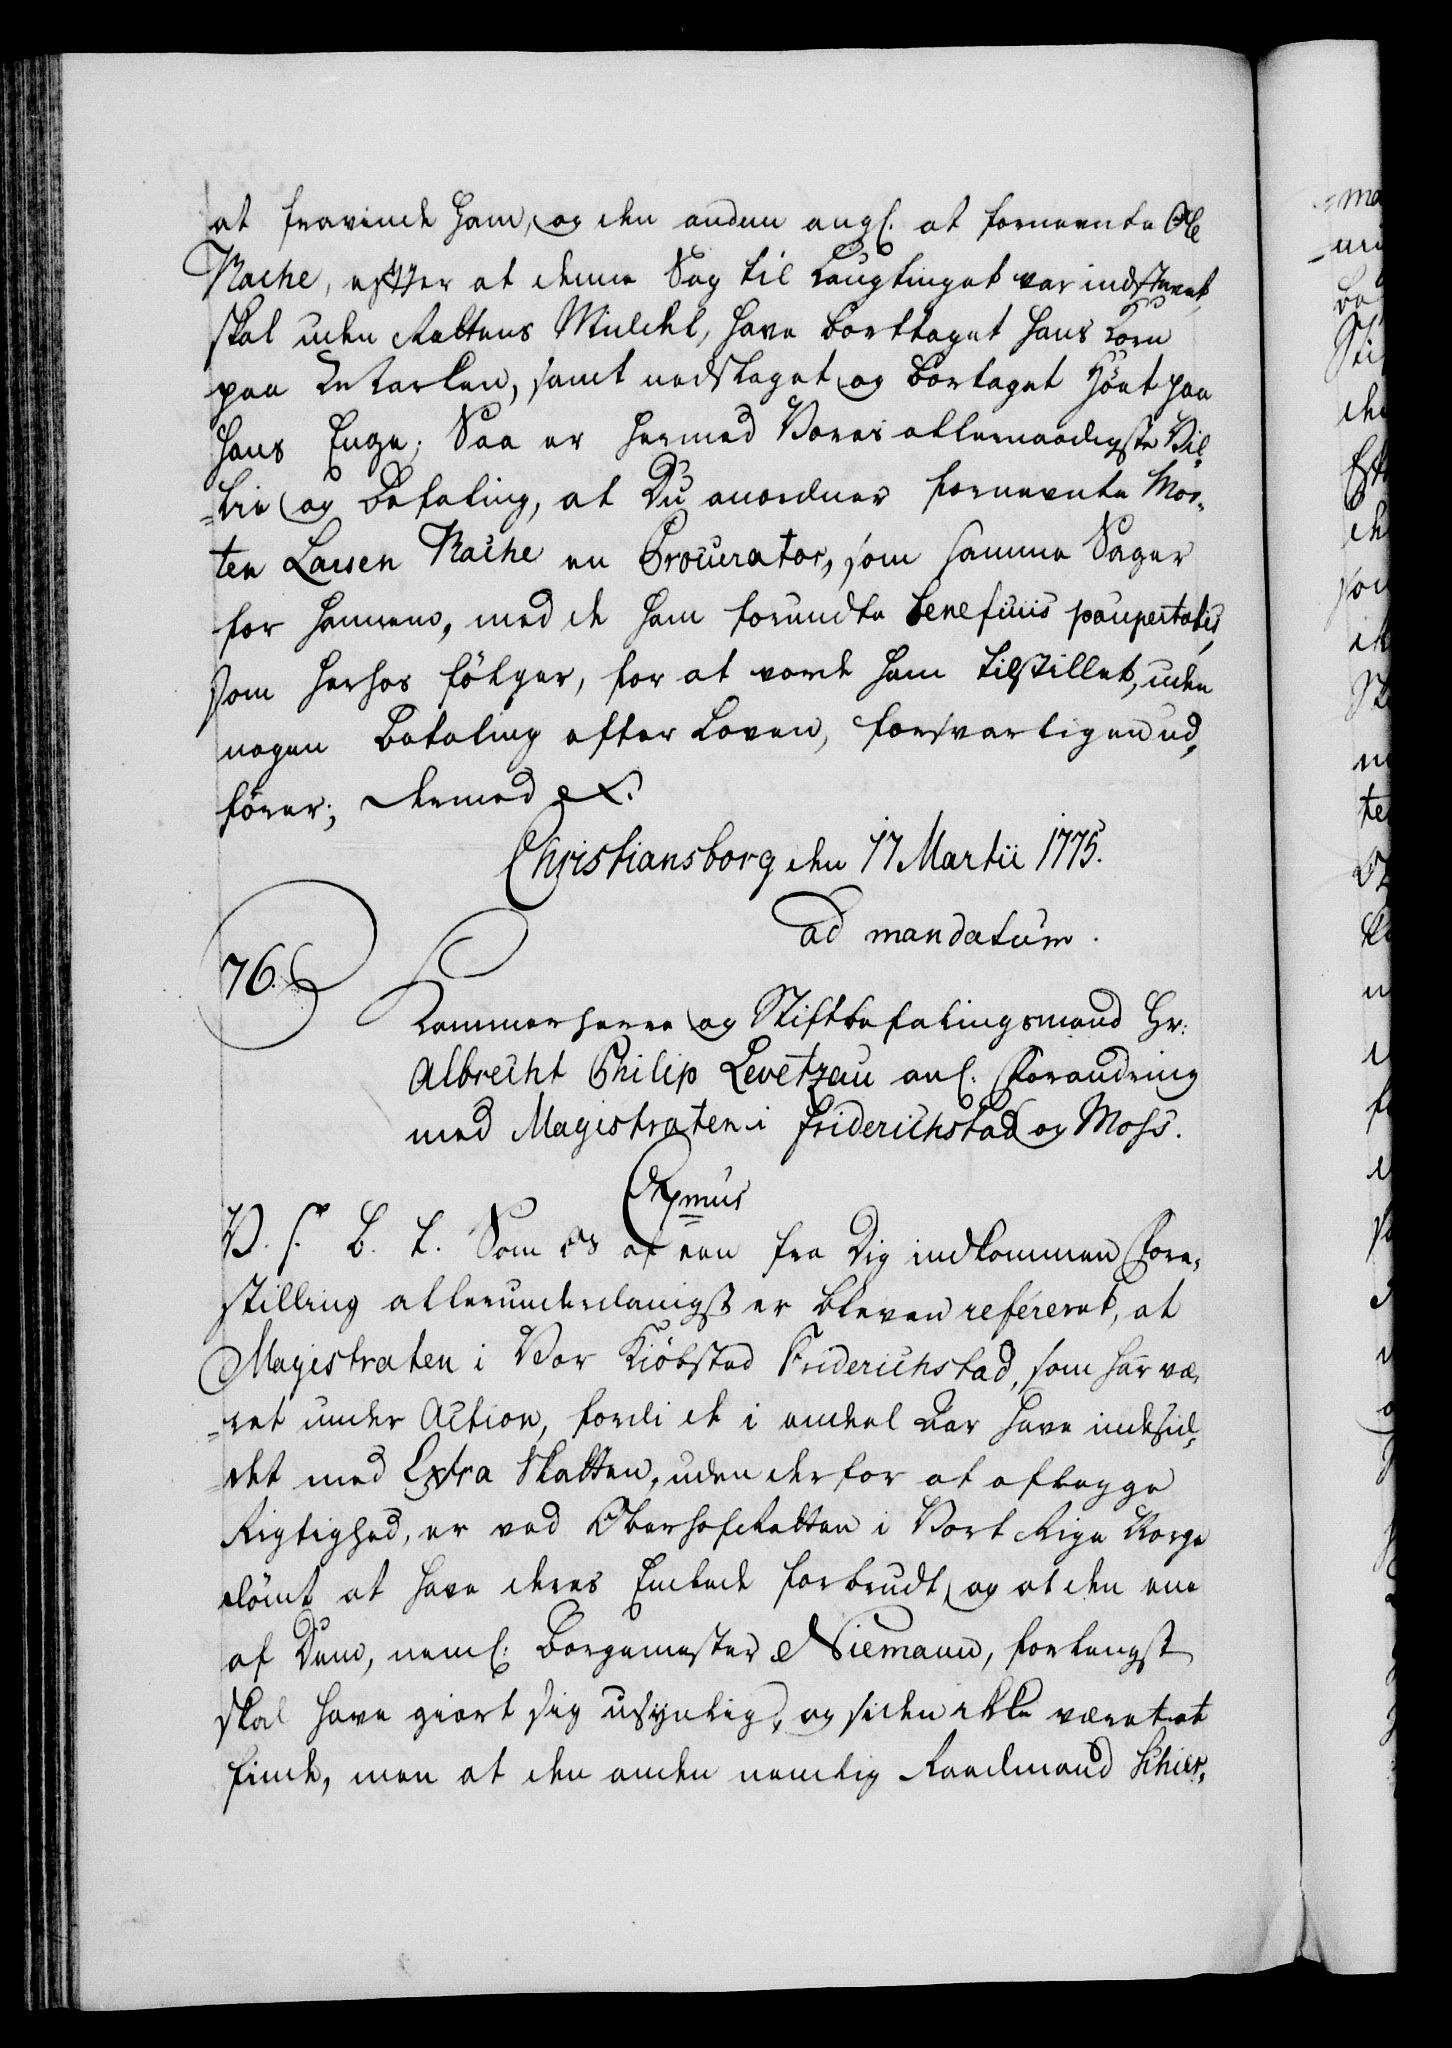 at fravinde ham, og den anden angl. at fornevnte Ole
Rache, efter at denne Sag til Laugtinget var indstevnt,
skal uden Rettens Middel, have borttaget hans Korn
paa Ageren, samt nedslaget og bortaget Höet paa
hans Enge; Saa er hermed Vores allernaadigste Vil-
=lie og Befaling, at Du anordner fornevnte Mor-
ten Larsen Rache en Procurator, som samme Sager
for hannem, med de ham forundte beneficiis paupertatis,
som herhos fölger, for at vorde ham tilstillet, uden
nogen Betaling efter Loven, forsvarligen ud-
förer; dermed &c.
Christiansborg den 17 Martii 1775.
ad mandatum.
76.
Kammerherre og Stiftbefalingsmand Hr:
Albrecht Philip Levetzau anl. Forandring
med Magistraten i Friderichstad og Moss.
V. S. B. T. Som Os af een fra Dig indkommen Fore-
stilling allerunderdanigst er bleven refereret, at
Magistraten i Vor Kiöbstad Friderichstad, som har væ-
=ret under Action, fordi de i endeel Aar have indesid-
=det med Extra Skatten, uden derfor at aflegge
Rigtighed, er ved Oberhofretten i Vort Rige Norge
dömt at have deres Embede forbrudt, og at den ene
af Dem, neml: Borgemester Niemann, forlengst
skal have giort sig usynlig, og siden ikke været at
finde, men at den anden nemlig Raadmand Schier-